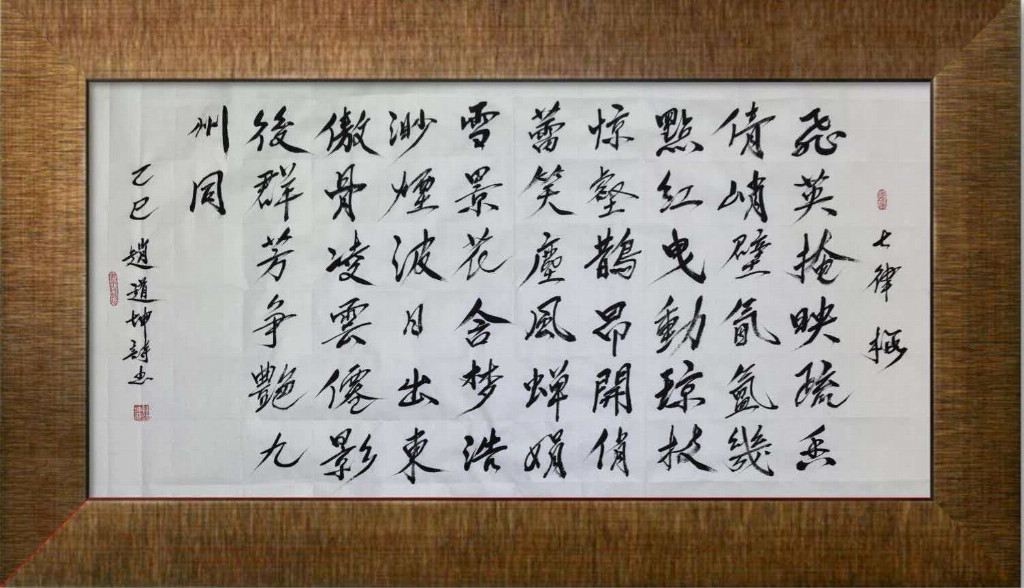 七律 梅
飛英掩映疏香
倩峭壁氤氲幾
點紅曳動琼枝
惊壑鵲昂開俏
蕾笑塵風蝉娟
雪景花含梦浩
渺煙波日出東
傲骨凌雲僊影
後群芳争艷九
州同
乙巳 趙道坤詩书